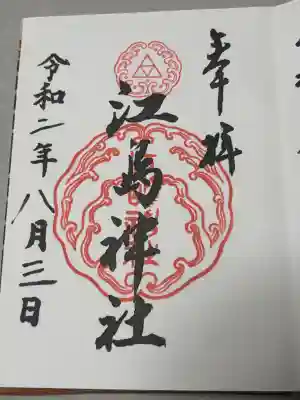 奉拝
江島神社
令和二年八月三日